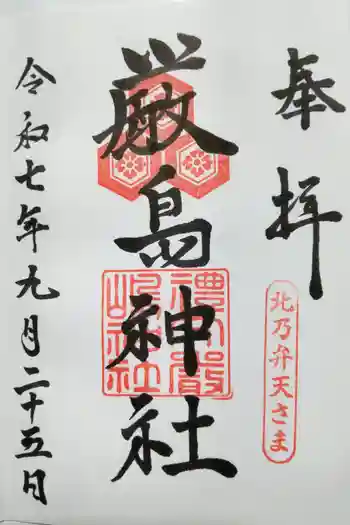 奉拝
北乃弁天さま
厳島神社
令和七年九月二十五日